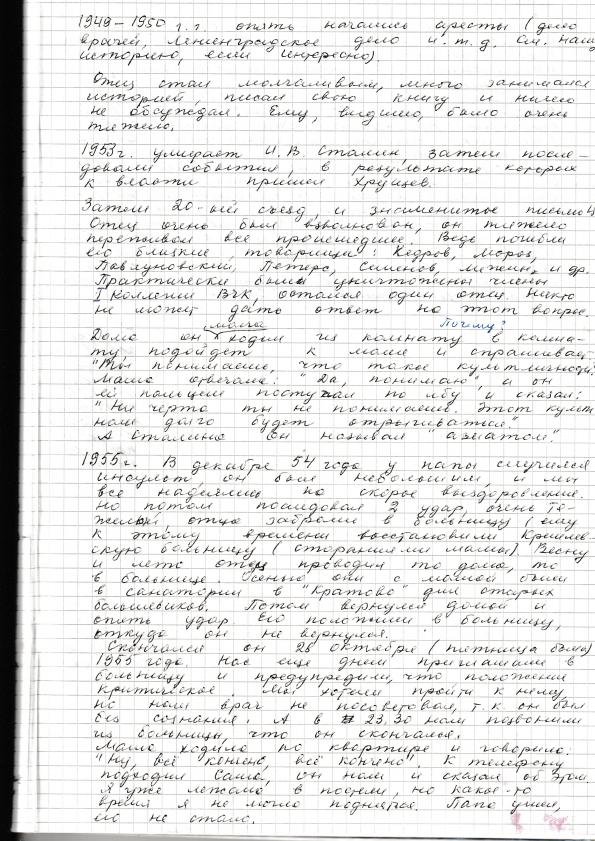 1949–1950 г.г. опять начались аресты (дело
врачей, Ленинградское дело и т.д. см. нашу
историю, если интересно).
Отец стал молчаливым, много занимался
историей, писал свою книгу и ничего
не обсуждал. Ему, видимо, было очень
тяжело.
1953г. умирает И.В. Сталин, затем после-
довали события, в результате которых
к власти пришел Хрущев.
Затем 20-ый съезд, и знаменитое письмо
Отец очень был взволнован, он тяжело
переживал все происшедшее. Ведь погибли
его близкие, товарищи: Кедров, Мороз,
Павлуновский, Петерс, Менжин, и др.
Практически были уничтожены члены
I Коллегии ВЧК, остался один отец. Никто
не может дать ответ на этот вопрос.
Почему?
мама
Дома он ходил из комнаты в комна-
ту, подойдет к маме и спрашивает
"Ты понимаешь, что такое культ личности?"
Мама отвечала: "Да, понимаю", а он
ей пальцем постучал по лбу и сказал:
"Ни черта ты не понимаешь. Этот культ
нам долго будет отрыгиваться."
А Сталина он называл "азиатом".
1955г. В декабре 54 года у папы случился
инсульт, он был небольшим, и мы
все надеялись на скорое выздоровление.
Но потом последовал 2 удар, очень тя-
желый, отца забрали в больницу (ему
к этому времени восстановили Кремлев-
скую больницу (стараниями мамы). Весну
и лето отец проводил то дома, то
в больнице. Осенью они с мамой были
в санатории в "Кратово" для старых
большевиков. Потом вернулся домой и
опять удар. Его положили в больницу,
откуда он не вернулся.
Скончался он 28 октября (пятница была)
1955 года. Нас еще днем пригласили в
больницу и предупредили, что положение
критическое. Мы хотели пройти к нему,
но нам врач не посоветовал, т.к. он был
без сознания. А в 23.30 нам позвонили
из больницы, что он скончался.
Мама ходила по квартире и говорила:
"Ну, всё кончено, всё кончено". К телефону
подходил Саша, он нам и сказал об этом.
Я уже лежала в постели, но какое-то
время я не могла подняться. Папа ушел,
его не стало.